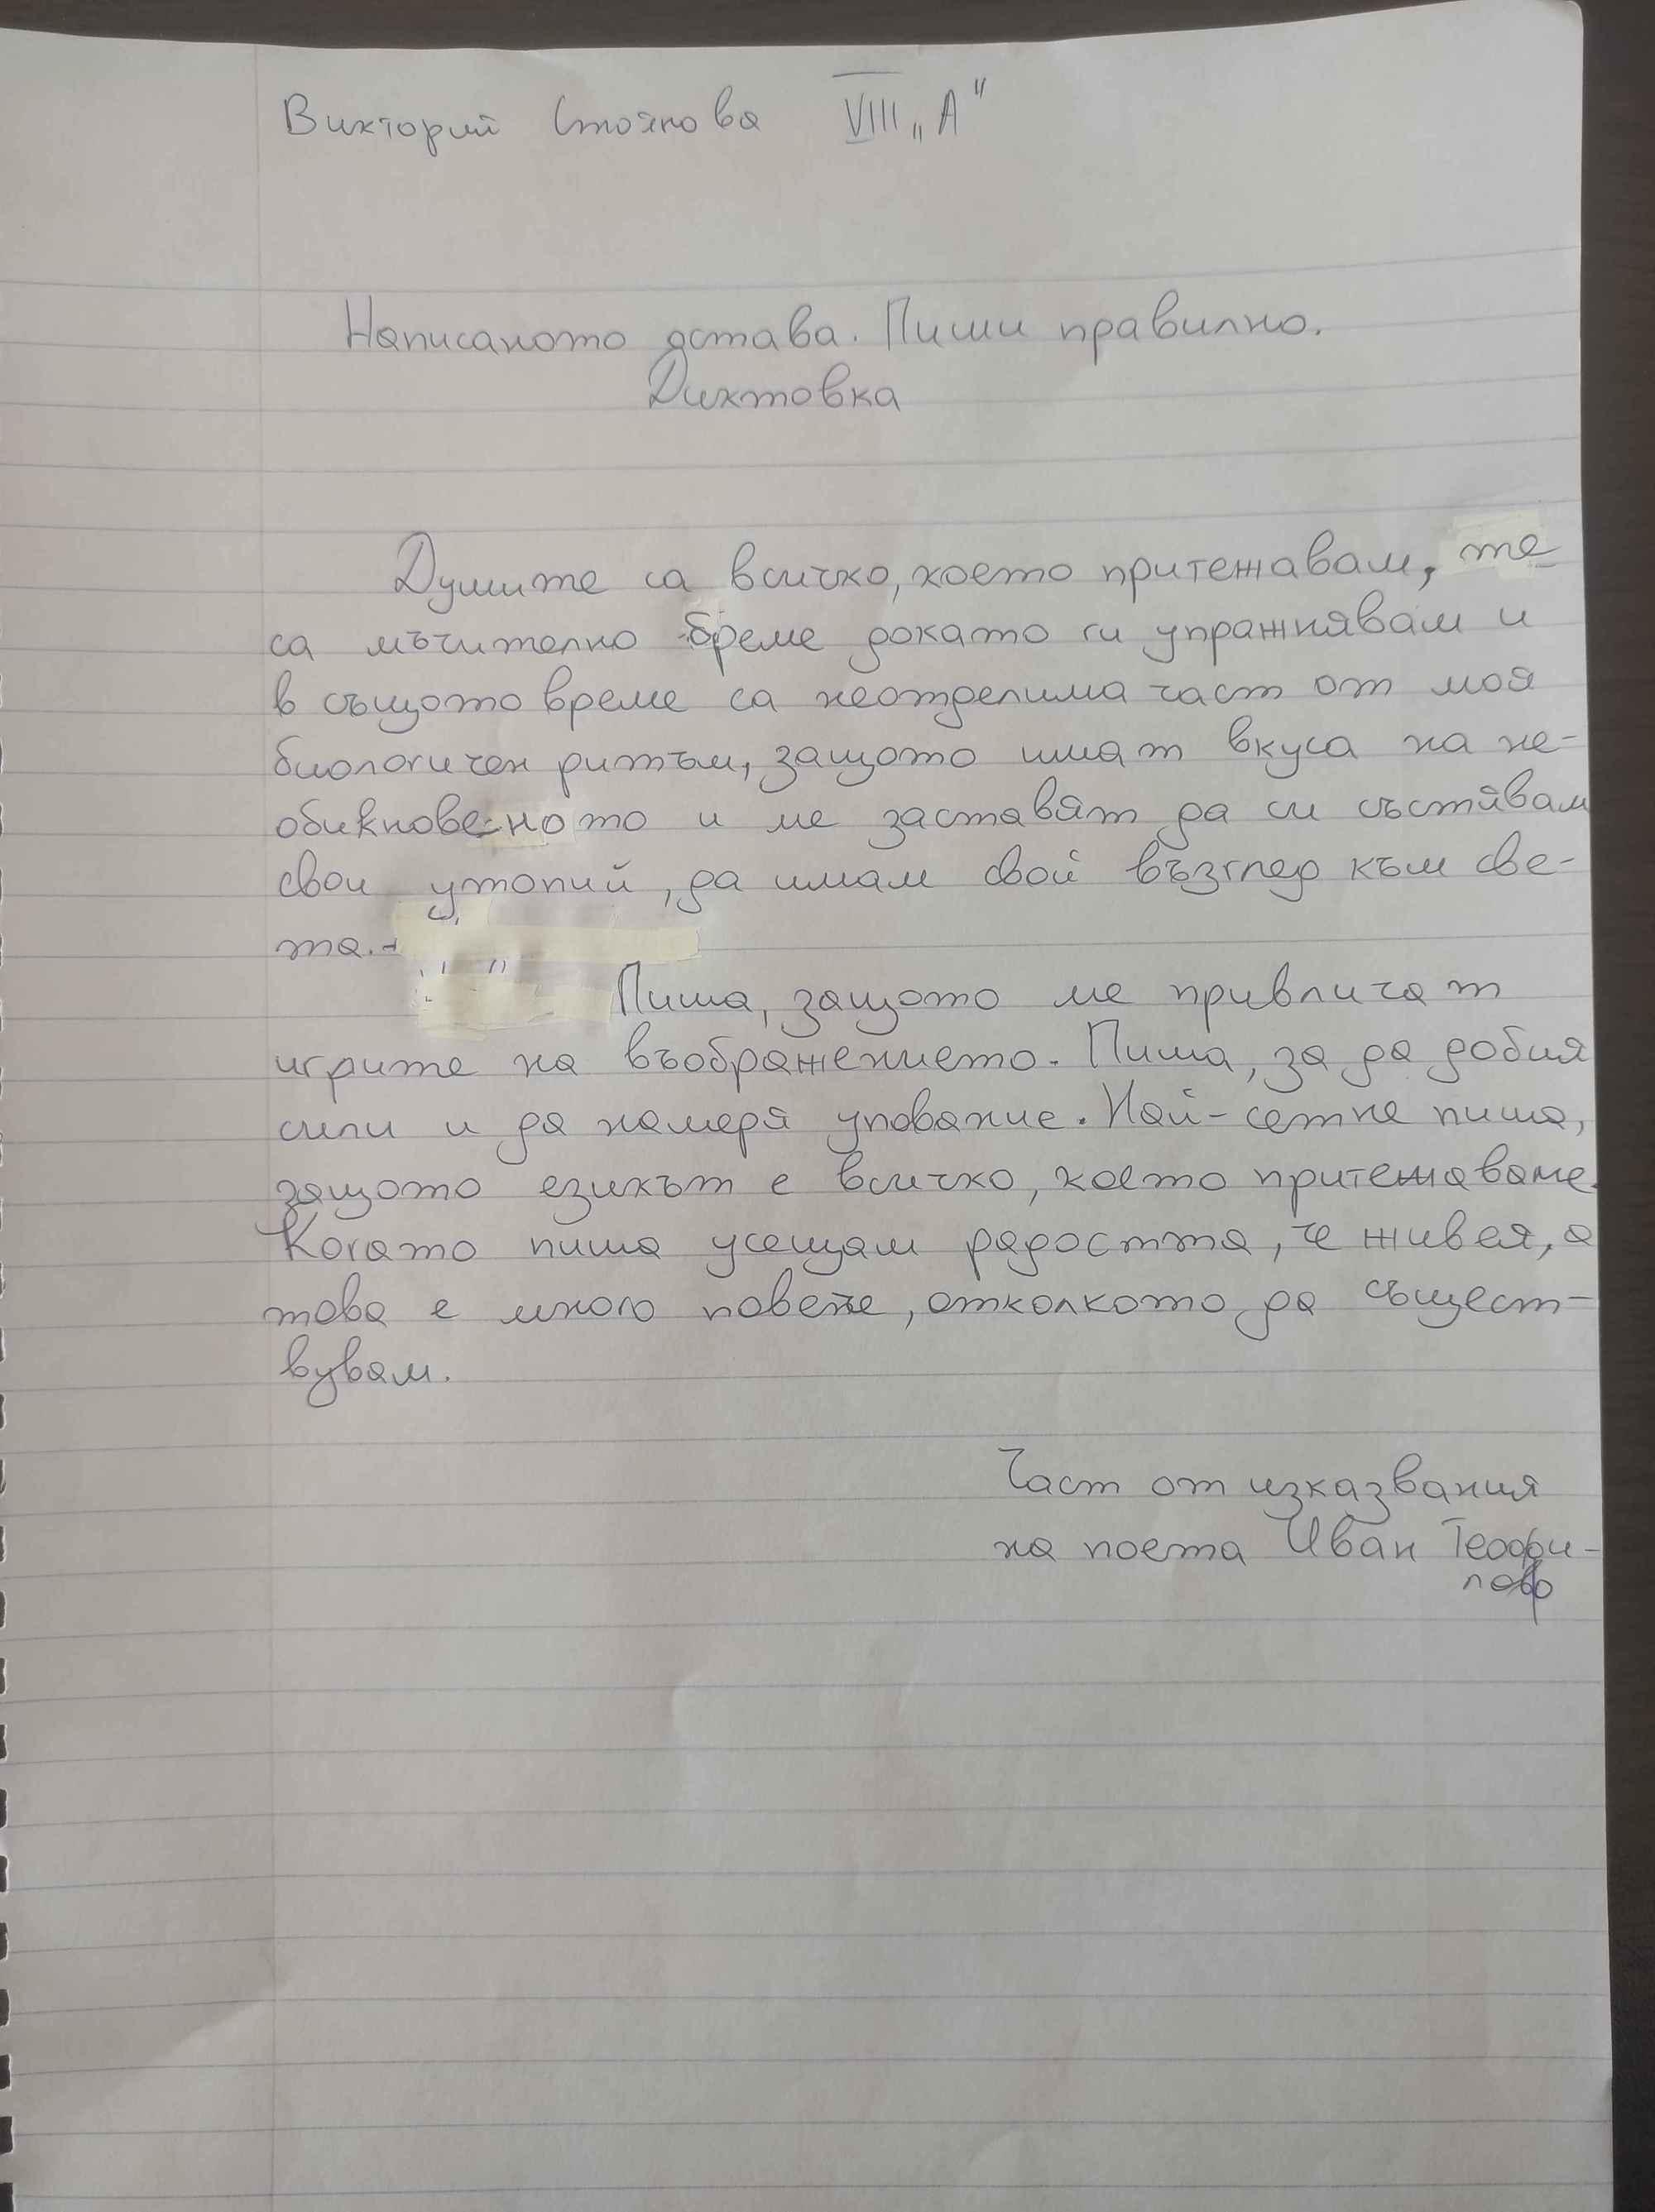 Викторий Стоянова VIII „А"
Написаното остава. Пиши правилно.
Диктовка
Думите са всичко, което притежавам, те
са мъчително бреме докато ги упражнявам и
в същото време са неотделима част от моя
биологичен ритъм, защото имат вкуса на не-
обикновеното и ме заставят да си съставям
свои утопий, да имам свой възглед към све-
та.
Пиша, защото ме привличат
игрите на въображението. Пиша, за да добия
сили и да намеря упование. Най-сетне пиша,
защото езикът е всичко, което притежаваме.
Когато пиша усещам радостта, че живея, а
това е много повече, отколкото да същест-
вувам.
Част от изказвания
на поета Иван Теофи-
лов